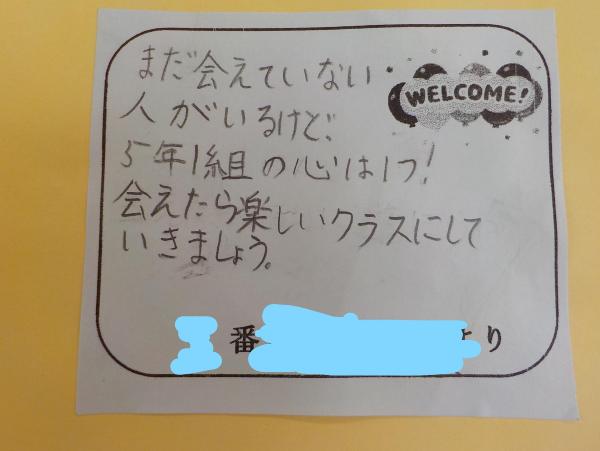 WELCOME!
まだ会えていない
人がいるけど、
5年1組の心は1つ!
会えたら楽しいクラスにして
いきましょう。
番 より